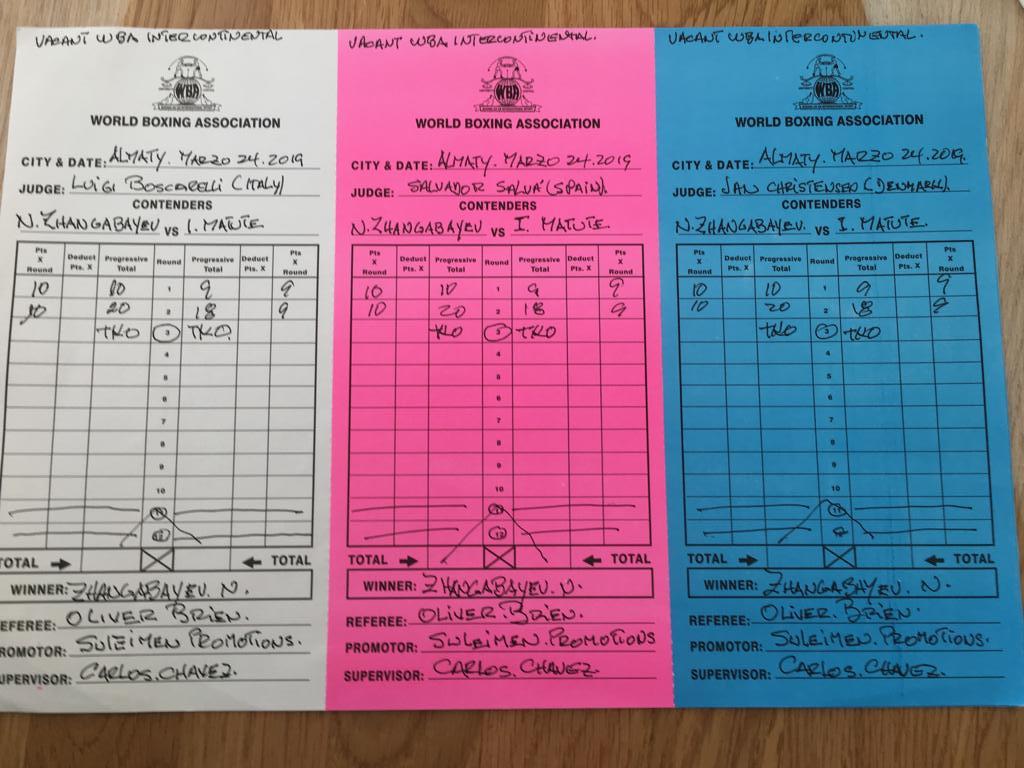 VACANT WBA INTERCONTINENTAL
WBA
WORLD BOXING ASSOCIATION
CITY & DATE: ALMATY. MARZO 24.2019
JUDGE: LUIGI BOSCARELLI (ITALY)
CONTENDERS
N. ZHANGABAYEV VS I. MATUTE
Pts X Round Deduct Pts. X Progressive Total Round Progressive Total Deduct Pts. X Pts X Round
10 10 1 9 9
10 20 2 18 9
TKO 3 TKO
4
5
6
7
8
9
10
11
12
TOTAL TOTAL
WINNER: ZHANGABAYEV. N.
EFEREE: OLIVER BRIEN.
ROMOTOR: SULEIMEN PROMOTIONS.
UPERVISOR: CARLOS. CHAVEZ.
VACANT WBA INTERCONTINENTAL.
WBA
WORLD BOXING ASSOCIATION
CITY & DATE: ALMATY. MARZO 24.2019
JUDGE: SALVADOR SALVA' (SPAIN).
CONTENDERS
N. ZHANGABAYEV VS I. MATUTE
Pts X Round Deduct Pts. X Progressive Total Round Progressive Total Deduct Pts. X Pts X Round
10 10 1 9 9
10 20 2 18 9
TKO 3 TKO
4
5
6
7
8
9
10
11
12
TOTAL TOTAL
WINNER: ZHANGABAYEV. N.
REFEREE: OLIVER. BRIEN.
PROMOTOR: SULEIMEN. PROMOTIONS
SUPERVISOR: CARLOS. CHAVEZ.
VACANT WBA INTERCONTINENTAL.
WBA
WORLD BOXING ASSOCIATION
CITY & DATE: ALMATY. MARZO 24.2019.
JUDGE: JAN CHRISTENSEN (DENMARK).
CONTENDERS
N. ZHANGABAYEV. VS I. MATUTE.
Pts X Round Deduct Pts. X Progressive Total Round Progressive Total Deduct Pts. X Pts X Round
10 10 1 9 9
10 20 2 18 9
TKO 3 TKO
4
5
6
7
8
9
10
11
12
TOTAL TOTAL
WINNER: ZHANGABAYEV. N.
REFEREE: OLIVER. BRIEN.
PROMOTOR: SULEIMEN. PROMOTIONS.
SUPERVISOR: CARLOS. CHAVEZ.